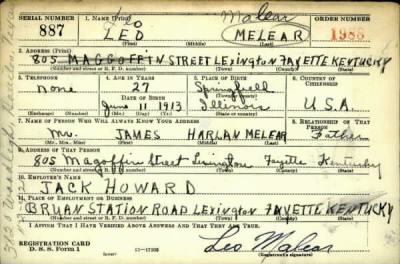 SERIAL NUMBER 1. NAME (Print) LEO Malear ORDER NUMBER
887 LEO MELEAR 1986
(First) (Middle) (Last)
2. ADDRESS (Print)
805 MAGGOFFIN STREET LEXINGTON FAYETTE KENTUCKY
(Number and street or R. F. D. number) (Town) (County) (State)
3. TELEPHONE 4. AGE IN YEARS 5. PLACE OF BIRTH 6. COUNTRY OF CITIZENSHIP
None 27 Springfield
DATE OF BIRTH (Town or county)
June 11 1913 Illinois U.S.A.
(Exchange) (No.) (Mo.) (Day) (Yr.) (State or country)
7. NAME OF PERSON WHO WILL ALWAYS KNOW YOUR ADDRESS 8. RELATIONSHIP OF THAT PERSON
Mr. JAMES HARLAN MELEAR Father
(Mr., Mrs., Miss) (First) (Middle) (Last)
9. ADDRESS OF THAT PERSON
805 Magoffin Street Lexington Fayette Kentucky
(Number and street or R. F. D. number) (Town) (County) (State)
10. EMPLOYER'S NAME
JACK HOWARD
11. PLACE OF EMPLOYMENT OR BUSINESS
BRYAN STATION ROAD LEXINGTON FAYETTE KENTUCKY
(Number and street or R. F. D. number) (Town) (County) (State)
I AFFIRM THAT I HAVE VERIFIED ABOVE ANSWERS AND THAT THEY ARE TRUE.
REGISTRATION CARD
D. S. S. FORM 1 Leo Malear
(Registrant's signature)